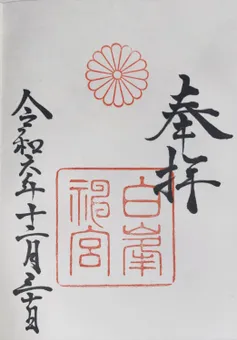 奉拝
白峯
神宮
令和六年十二月三十日